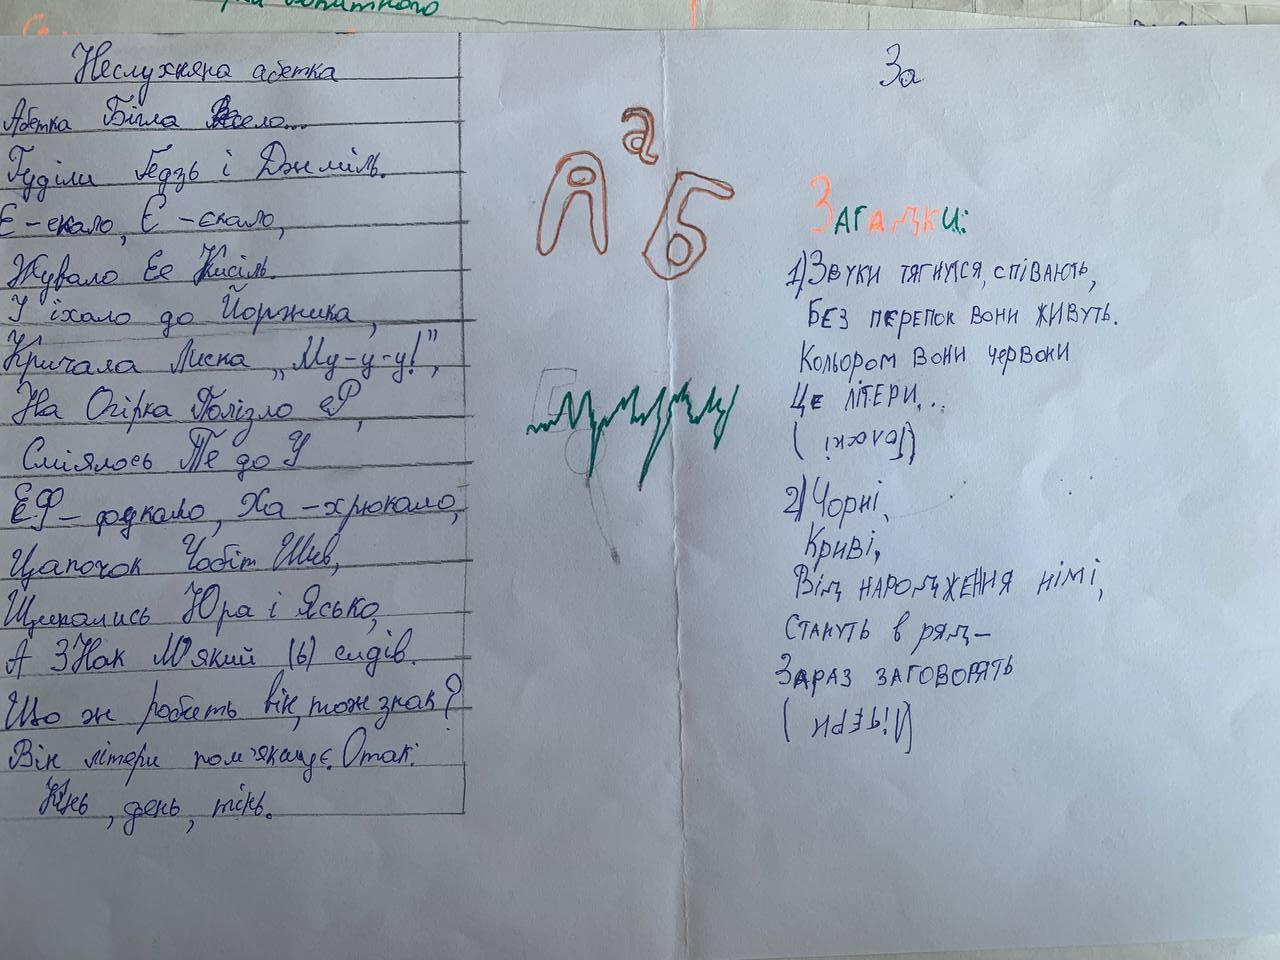 Неслухняна абетка
Абетка Бігла Весело...
Гуділи Ґедзь і Джміль.
Е-екало, Є-єкало,
Жувало Зе Кисіль.
І їхало до Йоржика,
Кричала Лиска „Му-у-у!”,
На Огірка Полізло еР,
Сміялось Те до У
ЕФ-фдкало, Ха-хрюкало,
Цапочок Чобіт Шив,
Щипались Юра і Ясько,
А ЗНак М'який (ь) сидів.
Що ж робить він, тож знак?
Він літери пом'якшує. Отак:
Кінь, день, тінь.
А а Б
За
Загадки:
1) Звуки тягнутся, співають,
Без перепок вони живуть.
Кольором вони червони
Це літери...
(Голосні)
2) Чорні,
Криві,
Від народження німі,
Стануть в ряд-
Зараз заговорять
(Літери)